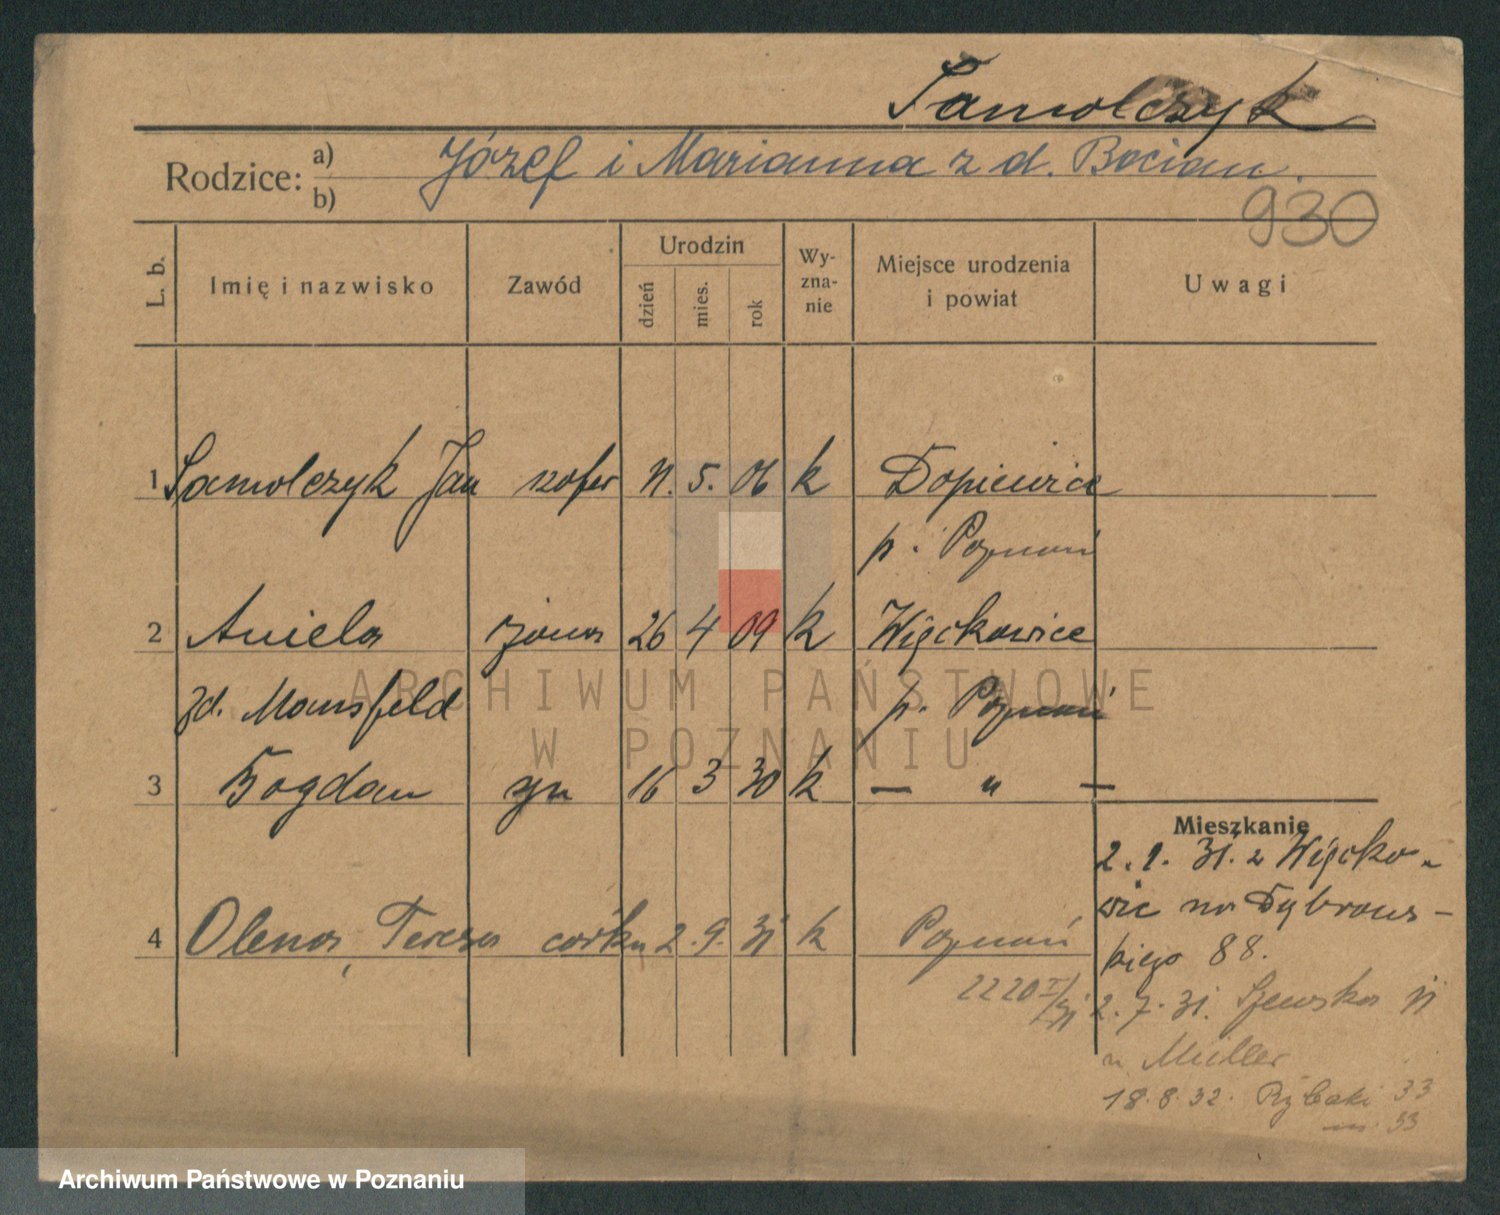 Samolczyk
Rodzice: a) b) Józef i Marianna z d. Bocian.
930
L. b. Imię i nazwisko Zawód Urodzin dzień mies. rok Wyzna-nie Miejsce urodzenia i powiat Uwagi
1 Samolczyk Jan szofer 11. 5. 06 k Dopiewice
p. Poznań
2 Aniela żona 26 4 09 k Więckowice
zd. Mansfeld p. Poznań
ARCHIWUM PAŃSTWOWE
W POZNANIU
3 Bogdan syn 16 3 30 k — " —
Mieszkanie
2.1.31. z Więcko-
wic na Dąbrows-
kiego 88.
4 Olena, Teresa córka 2. 9. 31 k Poznań
2220 I/31
2.7.31. Szewska 11
u Müller
18.8.32. Rybaki 33
m. 33
Archiwum Państwowe w Poznaniu